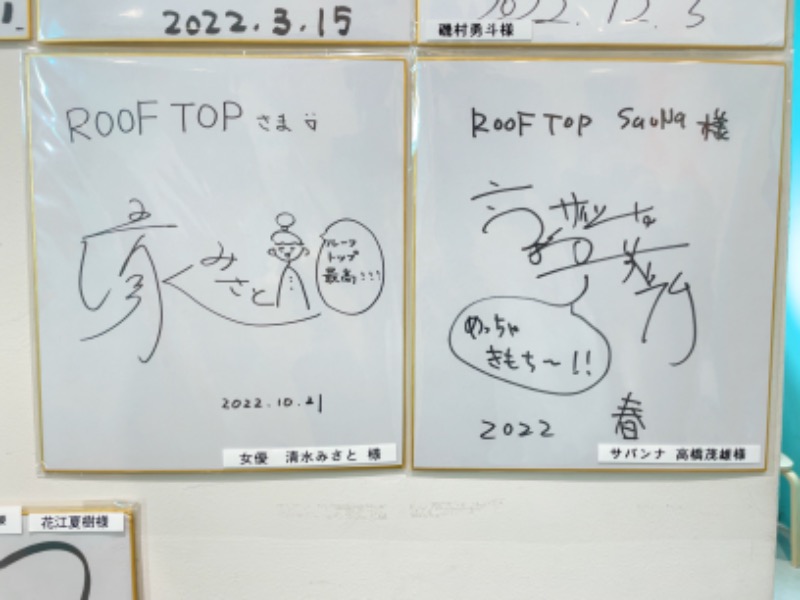 2022.3.15
2022.12.3
磯村勇斗様
ROOF TOP さま
みさと
ルーフ
トップ
最高!!!
2022.10.21
女優 清水みさと 様
ROOF TOP SauNa 様
めっちゃ
きもち〜!!
2022 春
サバンナ 高橋茂雄様
花江夏樹様